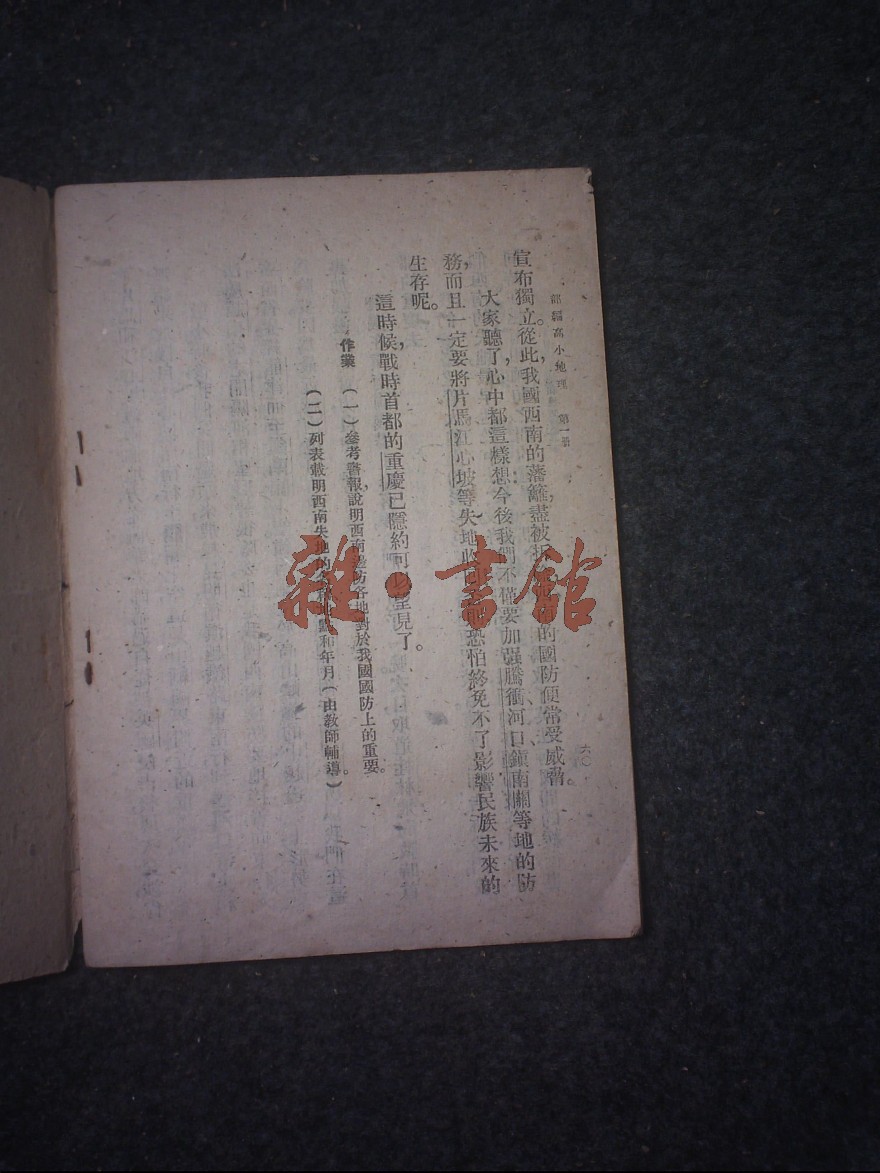 部編高小地理 第一册
六〇
宣布獨立。從此，我國西南的藩籬，盡被拆 的國防便常受威脅。
大家聽了，心中都這樣想：今後我們不僅要加强騰衝、河口、鎮南關等地的防
務，而且一定要將片馬江心坡等失地收 恐怕終免不了影響民族未來的
生存呢。
這時候，戰時首都的重慶已隱約可以望見了。
作業 （一）參考警報，說明西南邊防各地對於我國國防上的重要。
（二）列表載明西南失地的 和年月（由教師輔導。）
雜·書館